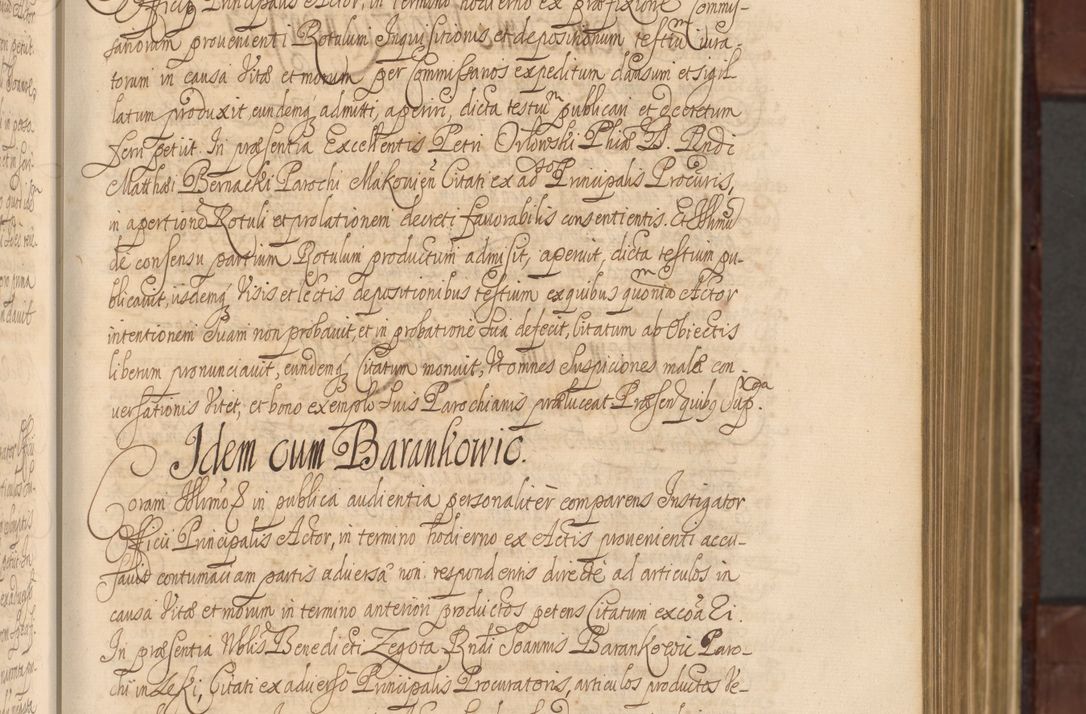 Officii Principalis Actor, in termino hodierno ex præfixione Commis-
sariorum provenienti Rotulum Inquisitionis et depositionum testium iura-
torum in causa Vitæ et morum per Commissarios expeditum clausum et sigil
latum produxit, eundemq admitti, aperiri, dicta testiũ publicari et decretum
ferri petiit. In præsentia Excellentis Petri Orlowski Phiæ D. Rndi
Matthæi Bernacki Parochi Makovien Citati ex adso Principalis Procuris,
in apertionē Rotuli et prolationem decreti favorabilis consentientis. Et Illmus
de consensu partium Rotulum productum admisit, aperuit, dicta testium pu-
blicavit, iisdemq Visis et lectis depositionibus testium ex quibus quoniam Actor
intentionem suam non probavit, et in probatione sua defecit, Citatum ab Obiectis
liberum pronunciavit, eundemq Citatum monuit, Ut omnes suspiciones malæ con-
versationis Vitet, et bono exemplo suis Parochianis præluceat Præsen quibq Supxga.
Idem cum Barankowic.
Coram Illmo E in publica audientia personaliter comparens Instigator
Officii Principalis Actor, in termino hodierno ex Actis provenienti accu-
savit contumaciam partis adversæ non respondentis directè ad articulos in
causa Vitæ et morum in termino anteriori productos petens Citatum ex coa Ei.
In præsentia Nblis Benedicti Zegota Rndi Joannis Barankowic Paro-
chi in Leki, Citati ex adverso Principalis Procuratoris, articulos productos Ve-